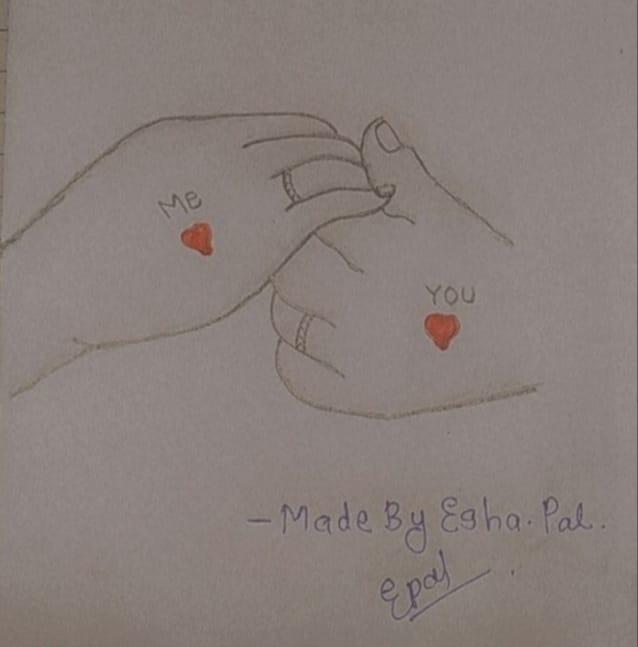 ME
YOU
- Made By Esha. Pal.
Epal